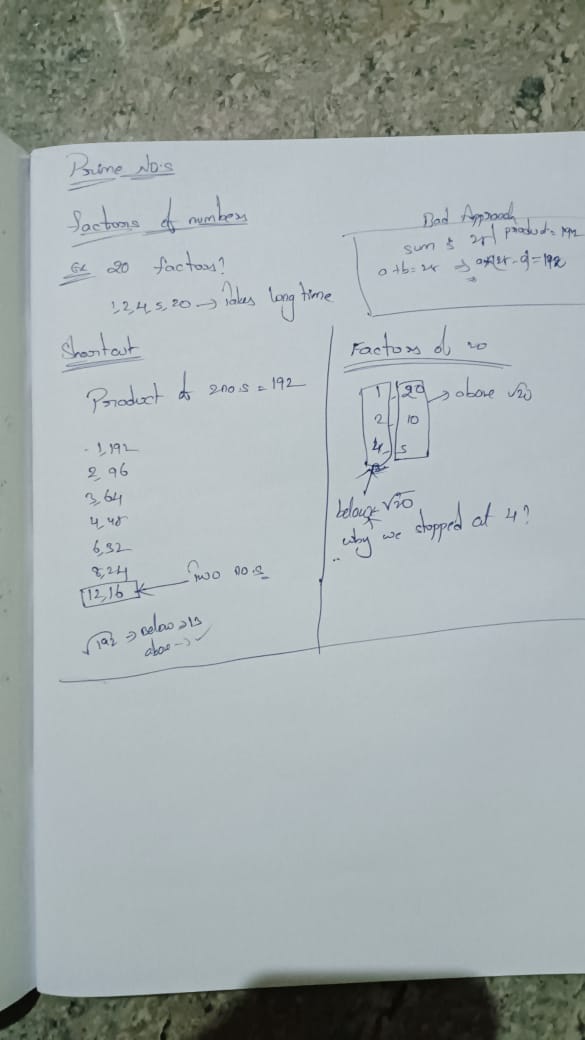 Prime No.s
factors of numbers
Ex 20 factors?
1,2,4,5,20 → Takes long time
Bad Approach
sum is product = 192
a+b=
Shortcut
Product of 2no.s = 192
1,192
2,96
3,64
4,48
6,32
8,24
12,16 ← Two no.s
√192 → Below → 13
above → ✓
Factors of 20
1 - 20 → above √20
2 - 10
4 - 5
below √20
why we stopped at 4?